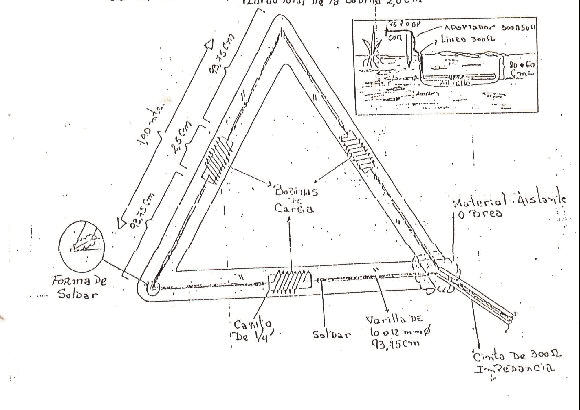 de la bobina 2,0 cm
75 Ω
ADAPTADOR 300Ω50Ω
Linea 300Ω
93,75 cm
1,00 mts
2,5 cm
93,75 cm
BOBINAS
DE
CARGA
Material Aislante
O BREA
FORMA DE
SOLDAR
CAñito
De 1/4
Soldar
Varilla DE
10 o 12 mm Ø
93,75 cm
Cinta De 300Ω
IMPEDANCIA